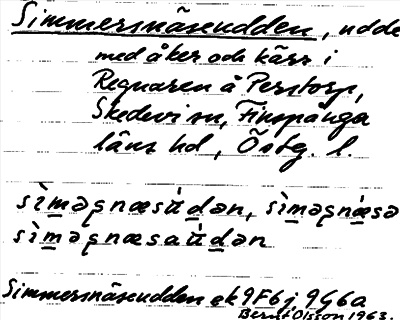 Simmersnäsudden, udde
med åker och kärr i
Regnaren å Perstorp,
Skedevi sn, Finspånga
läns hd, Östg. l.
sìmǝʂnæsʉ̀dǝn, sìmǝʂnæsǝ
sìmǝʂnæsaʉ̀dǝn
Simmersnäsudden ek 9F6j, 9G6a
Bernt Olsson 1963.